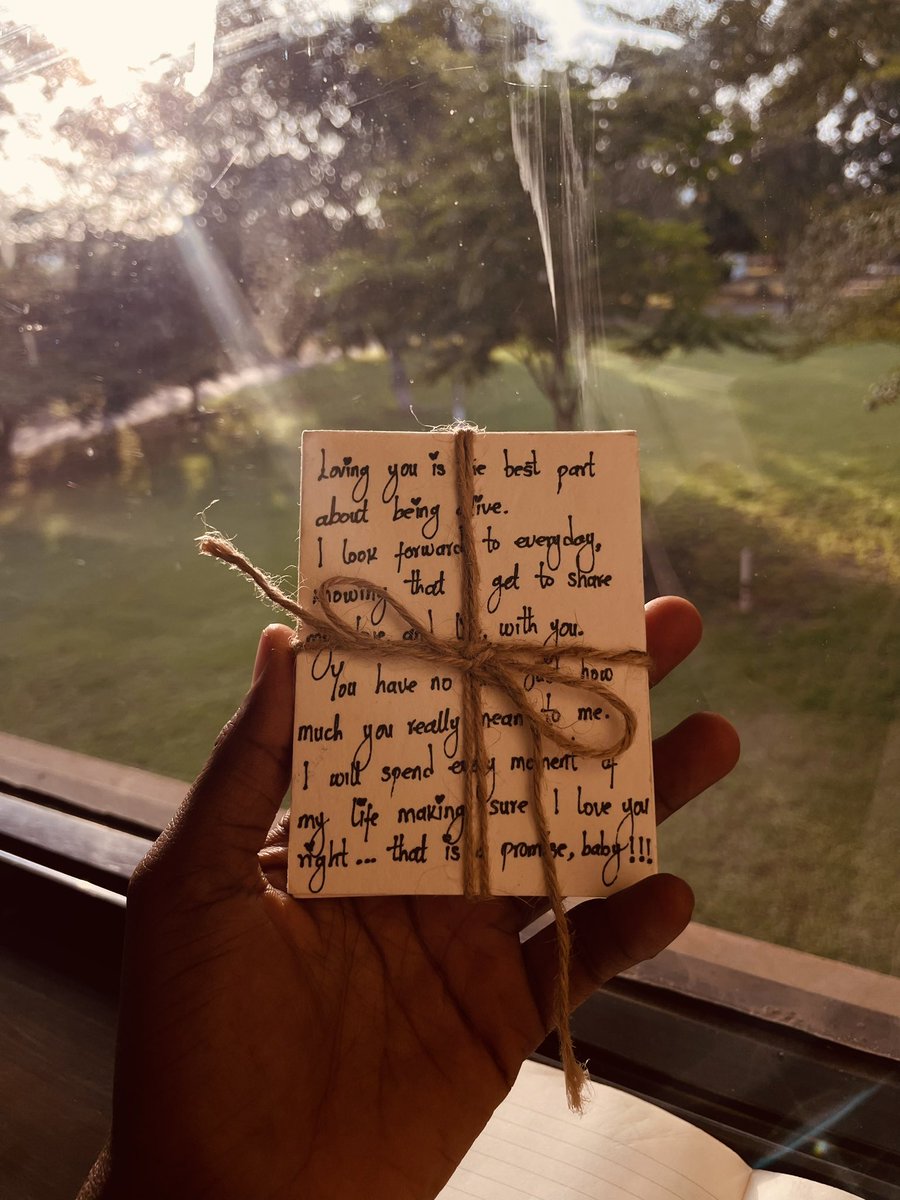 Loving you is the best part
about being alive.
I look forward to everyday,
knowing that I get to share
my love and life with you.
You have no just how
much you really mean to me.
I will spend every moment of
my life making sure I love you
right... that is a promise, baby!!!